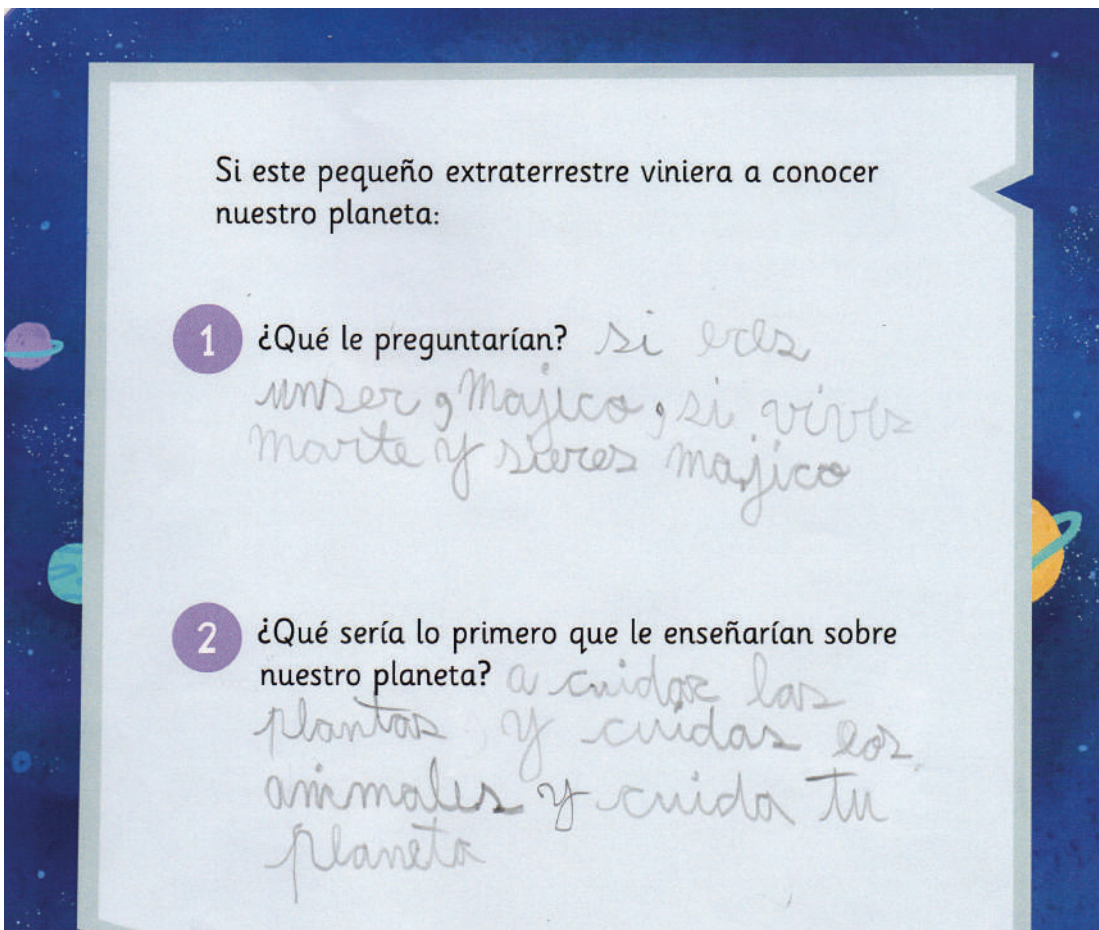 Si este pequeño extraterrestre viniera a conocer
nuestro planeta:
1 ¿Qué le preguntarían? si eres
unser, Majico, si vives
marte y sieres majico
2 ¿Qué sería lo primero que le enseñarían sobre
nuestro planeta? a cuidar las
plantas y cuidas los
animales y cuida tu
planeta